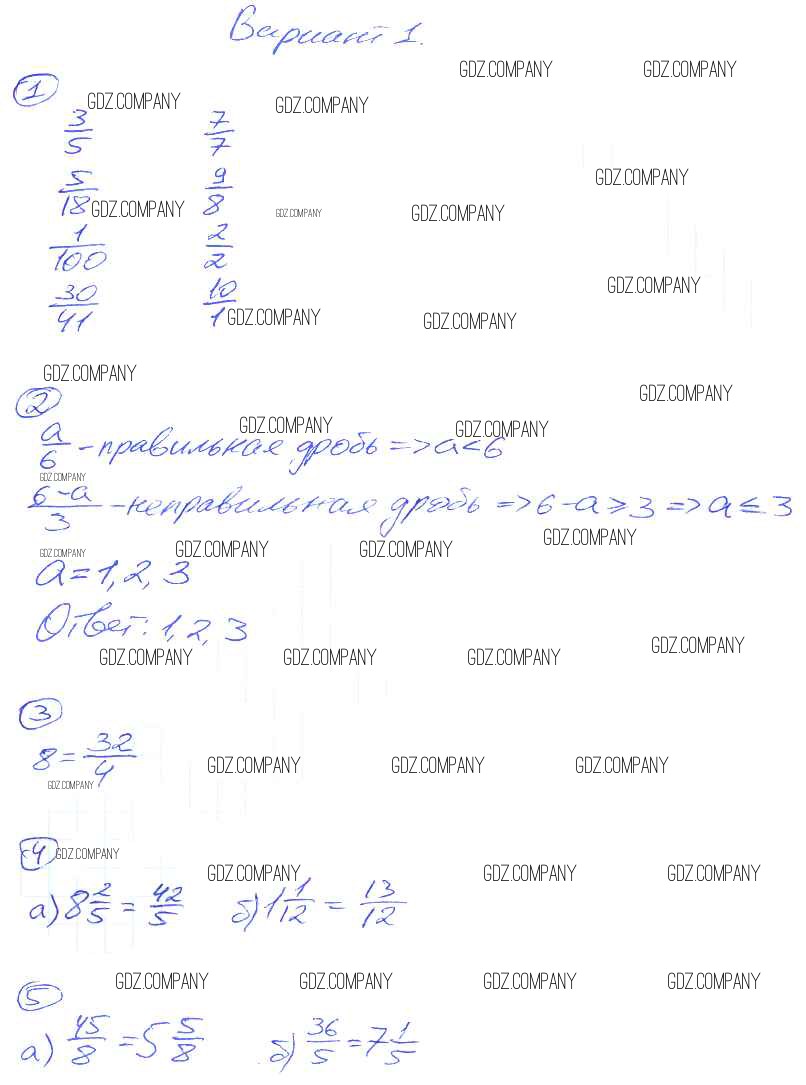 Вариант 1.
GDZ.COMPANY GDZ.COMPANY
1
GDZ.COMPANY GDZ.COMPANY
3/5 7/7
GDZ.COMPANY
5/18 9/8
GDZ.COMPANY GDZ.COMPANY GDZ.COMPANY
1/100 2/2
GDZ.COMPANY
30/41 10/1
GDZ.COMPANY GDZ.COMPANY
GDZ.COMPANY
GDZ.COMPANY
2
GDZ.COMPANY GDZ.COMPANY
a/6 - правильная дробь => a<6
GDZ.COMPANY
6-a/3 - неправильная дробь => 6-a≥3 => a≤3
GDZ.COMPANY GDZ.COMPANY GDZ.COMPANY GDZ.COMPANY
a=1,2,3
Ответ: 1,2,3
GDZ.COMPANY GDZ.COMPANY GDZ.COMPANY GDZ.COMPANY
3
8=32/4
GDZ.COMPANY GDZ.COMPANY GDZ.COMPANY
GDZ.COMPANY
4 GDZ.COMPANY
GDZ.COMPANY GDZ.COMPANY GDZ.COMPANY
а) 8 2/5 = 42/5 б) 1 1/12 = 13/12
GDZ.COMPANY GDZ.COMPANY GDZ.COMPANY GDZ.COMPANY
5
а) 45/8 = 5 5/8 б) 36/5 = 7 1/5